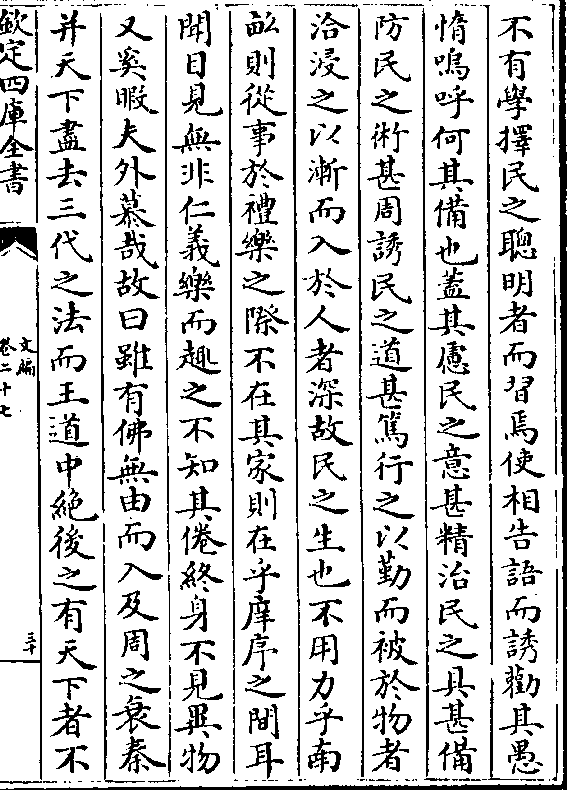 不有學擇民之聰明者而習焉使相告語而誘勸其愚
惰嗚呼何其備也蓋其慮民之意甚精治民之具甚備
防民之術甚周誘民之道甚篤行之以勤而被於物者
洽浸之以漸而入於人者深故民之生也不用力乎南
畝則從事於禮樂之際不在其家則在乎庠序之間耳
聞目見無非仁義樂而趣之不知其倦終身不見異物
又奚暇夫外慕哉故曰雖有佛無由而入及周之衰秦
并天下盡去三代之法而王道中絶後之有天下者不
欽定四庫全書
文編
卷二十七
三十